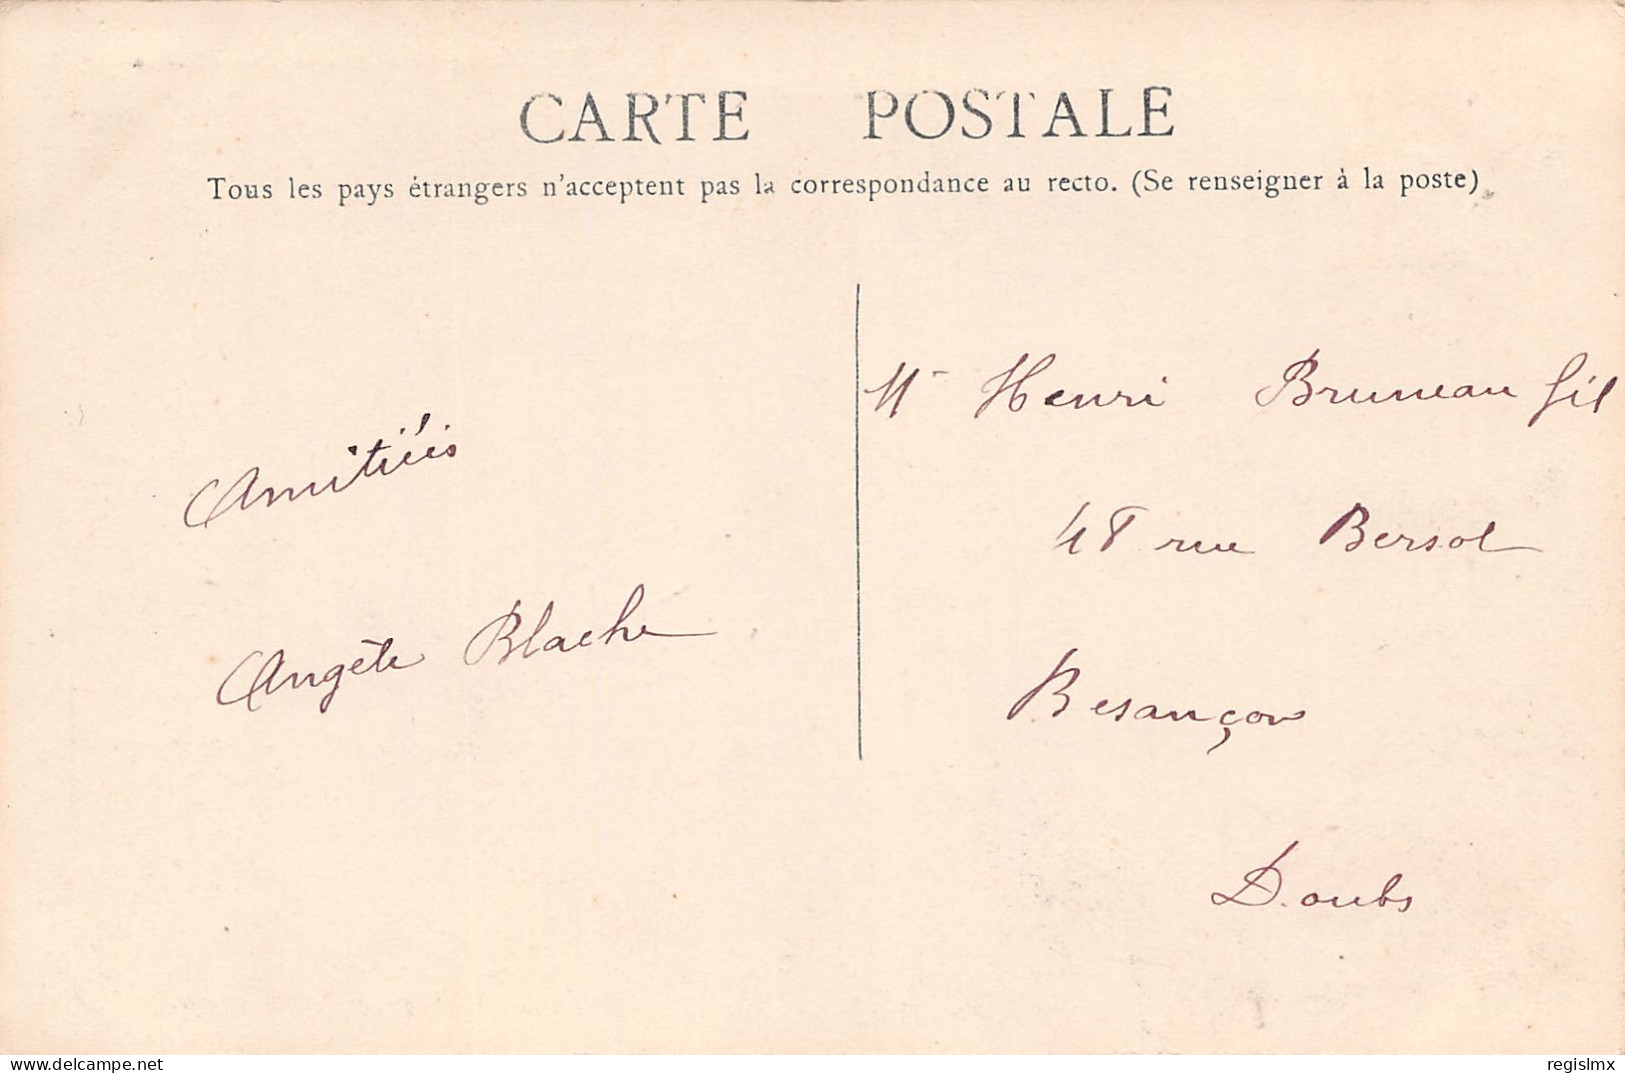 CARTE POSTALE
Tous les pays étrangers n'acceptent pas la correspondance au recto. (Se renseigner à la poste)
Amitiés
Angèle Blache
Mr Henri Bruneau fil
48 rue Bersot
Besançon
Doubs
www.delcampe.net
regislmx